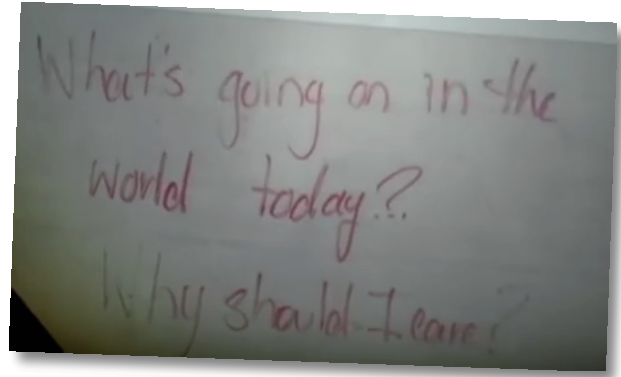 What's going on in the
world today?
Why should I care?